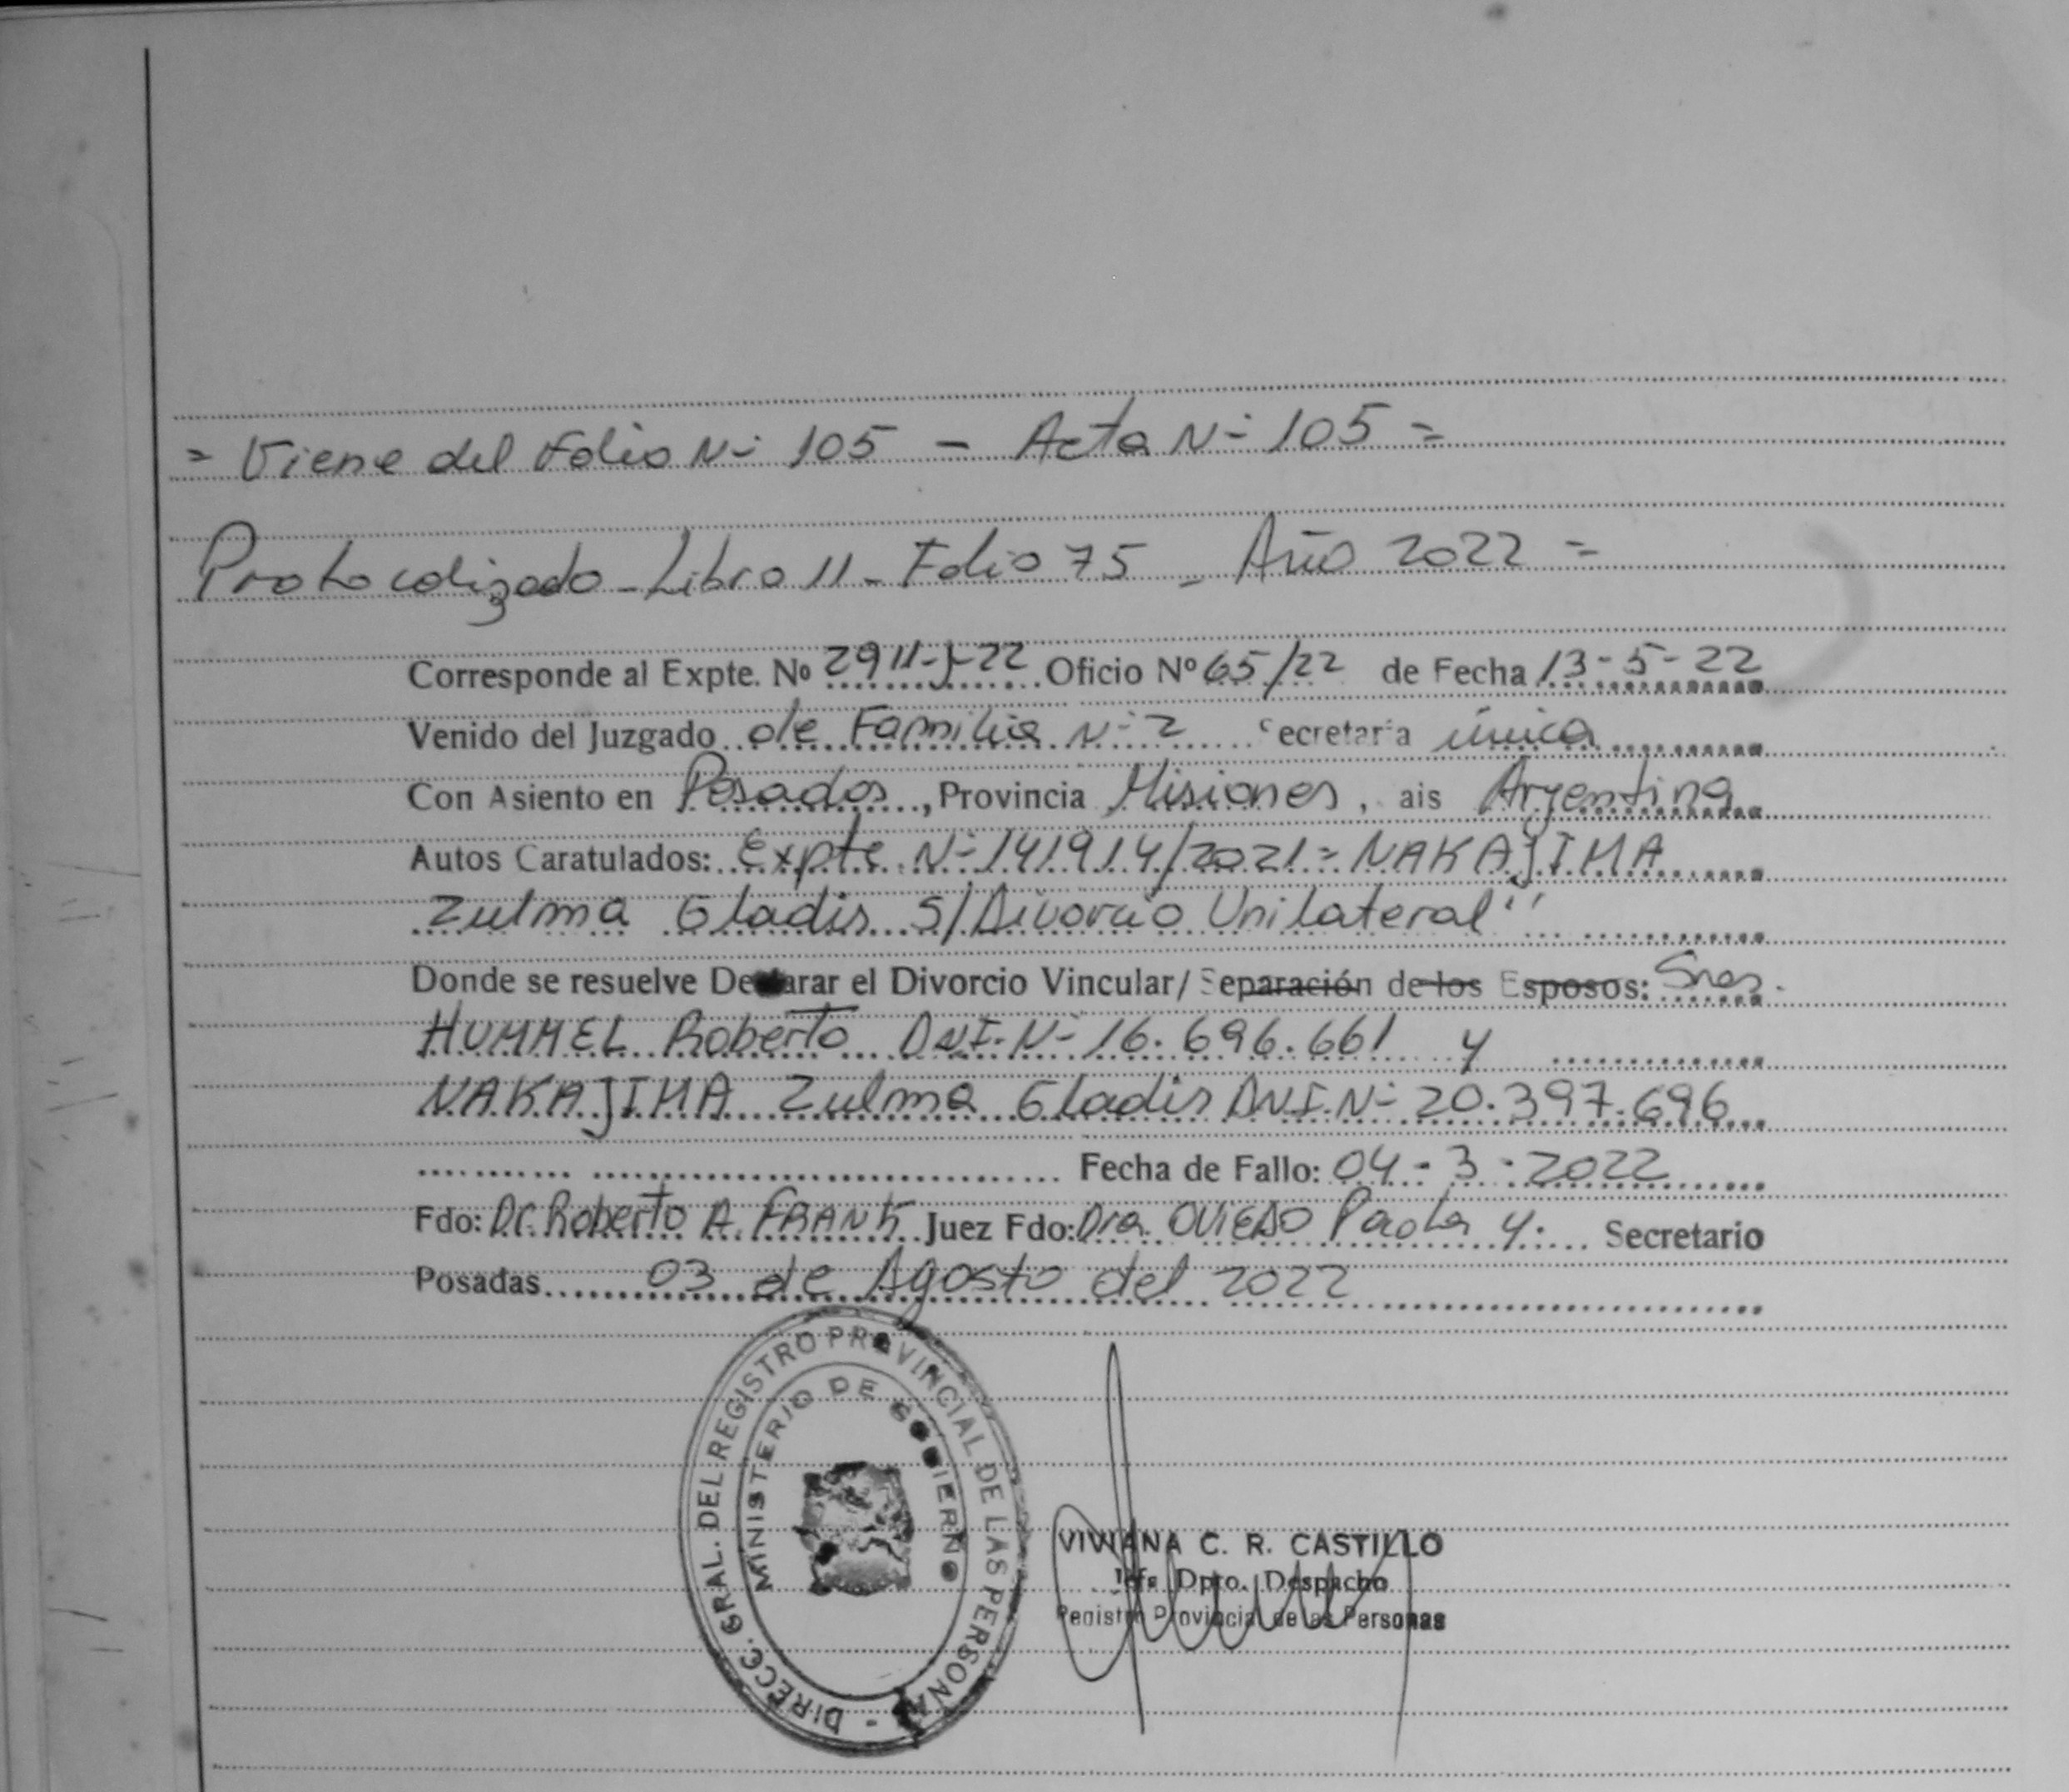 = Viene del Folio Nº 105 - Acta Nº 105 =
Protocolizado - Libro 11 - Folio 75 - Año 2022 =
Corresponde al Expte. Nº 2911-J-22 Oficio Nº 65/22 de Fecha 13-5-22
Venido del Juzgado de Familia Nº 2 Secretaria única
Con Asiento en Posadas, Provincia Misiones, ais Argentina
Autos Caratulados: Expte Nº 141914/2021= NAKAJIMA
Zulma Gladis S/Divorcio Unilateral"
Donde se resuelve Declarar el Divorcio Vincular/ Separación de los Esposos: Sres.
HUMMEL Roberto DNI. Nº 16.696.661 y
NAKAJIMA Zulma Gladis DNI. Nº 20.397.696
Fecha de Fallo: 04-3-2022
Fdo: Dr. Roberto A. FRANK Juez Fdo: Dra. OVIEDO Paola Y. Secretario
Posadas 03 de Agosto del 2022
DIRECC. GRAL. DEL REGISTRO PROVINCIAL DE LAS PERSONAS -
MINISTERIO DE GOBIERNO
VIVIANA C. R. CASTILLO
Jefa Dpto. Despacho
Registro Provincial de las Personas